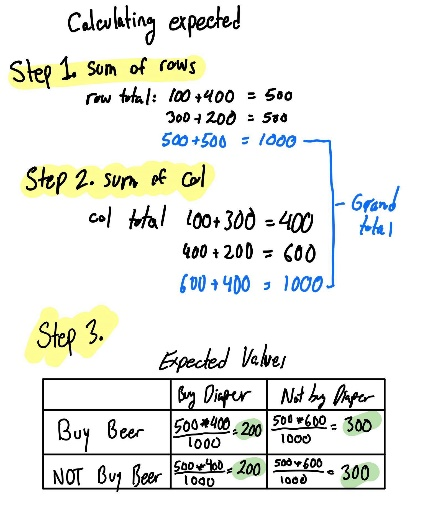 Calculating expected
Step 1. sum of rows
row total: 100+400 = 500
300+200 = 500
500+500 = 1000
Step 2. sum of col
col total 100+300 = 400
400+200 = 600
600+400 = 1000
Grand total
Step 3.
Expected Values
Buy Diaper Not by Diaper
Buy Beer 500*400/1000 = 200 500*600/1000 = 300
NOT Buy Beer 500*400/1000 = 200 500*600/1000 = 300